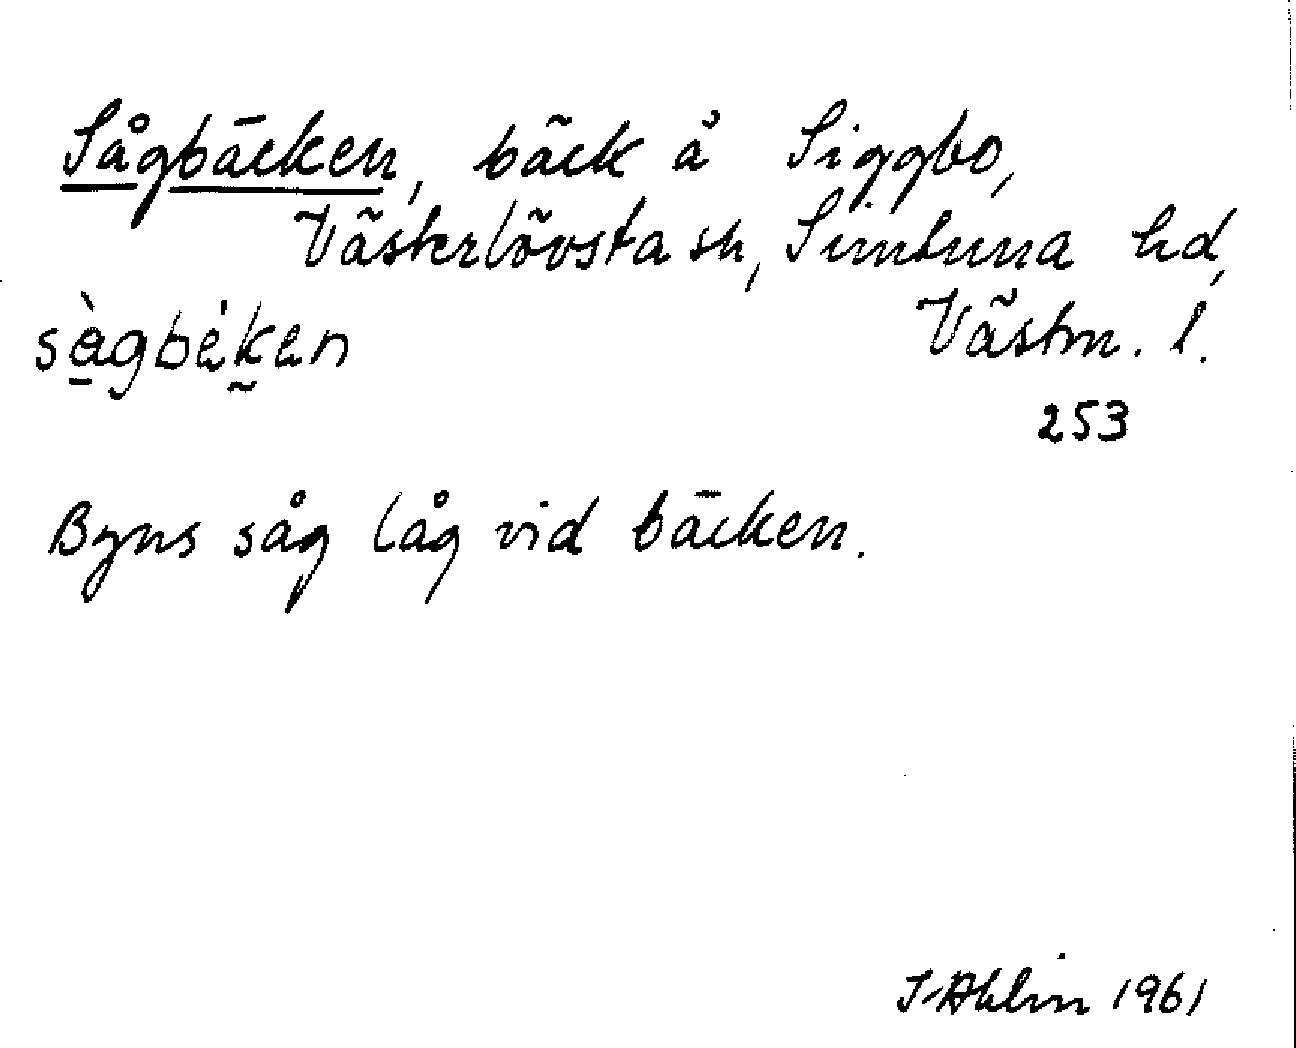 Sågbäcken, bäck å Siggbo,
Västerlövsta sn, Simtuna hd,
sàgbéken Västm. l.
253
Byns såg låg vid bäcken.
I-Ahlin 1961